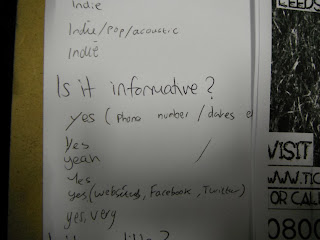 Indie
Indie/Pop/acoustic
Indie
Is it informative?
yes (phone number / dates
Yes
yeah /
Yes
yes, (websites, Facebook, Twitter)
yes, very
LEEDS
VISIT
WWW.TIC
OR CALL
0800